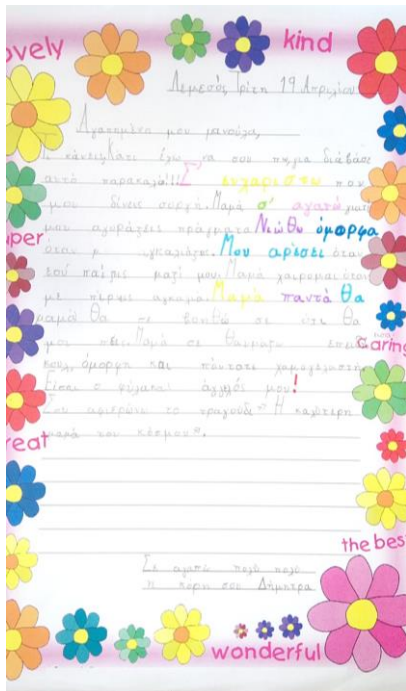 lovely
kind
Λεμεσός Τρίτη 19 Απριλίου
Αγαπημένη μου μανούλα,
κάνεις; Κάτι έχω να σου πω για διάβασε
αυτό παρακαλώ!!! Σ' ευχαριστώ που
μου δίνεις συγνά. Μαμά σ' αγαπώ
μου αγοράζεις πράγματα. Νιώθω όμορφα
όταν με αγκαλιάζεις. Μου αρέσει όταν
παίζεις μαζί μου. Μαμά χαίρομαι όταν
με παίρνεις αγκαλιά. Μαμά παντά θα
μαμά θα σε βοηθώ σε ότι θα
μου πεις. Μαμά σε θαυμάζω
όμορφη και πάντοτε χαμογελαστή.
Είσαι ο φύλακας άγγελός μου!
Σου αφιερώνω το τραγούδι "Η καλύτερη
μαμά του κόσμου".
caring
great
the best
Σε αγαπώ πολύ πολύ
η κόρη σου Δήμητρα
wonderful